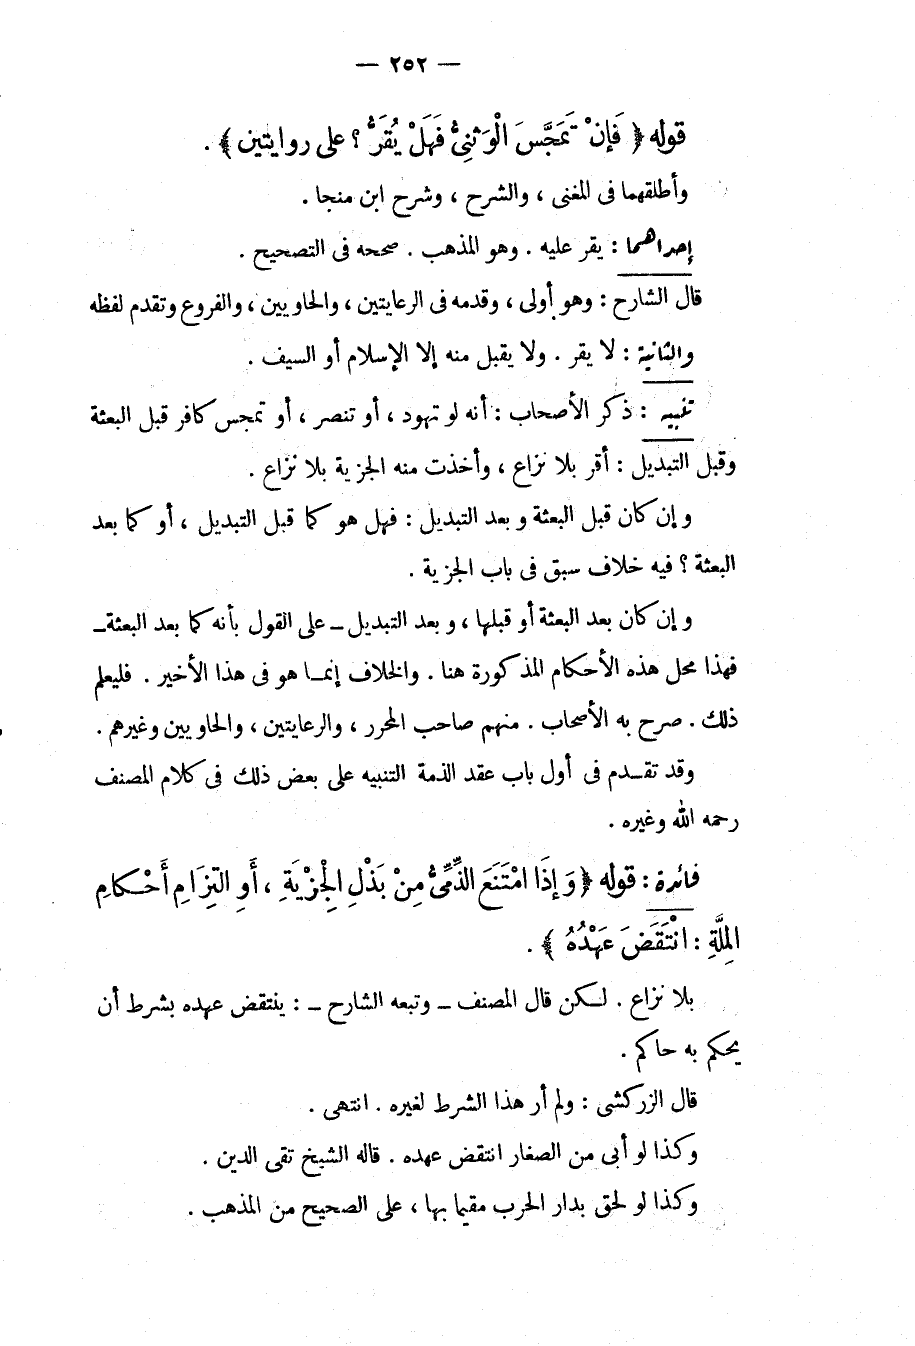 — ٢٥٢ —
قوله ﴿ فَإِنْ تَمَجَّسَ الْوَثَنِىُّ فَهَلْ يُقَرُّ ؟ على روايتين ﴾ .
وأطلقهما فى المغنى ، والشرح ، وشرح ابن منجا .
إحداهما : يقر عليه . وهو المذهب . صححه فى التصحيح .
قال الشارح : وهو أولى ، وقدمه فى الرعايتين ، والحاويين ، والفروع وتقدم لفظه
والثانية : لا يقر . ولا يقبل منه إلا الإسلام أو السيف .
تنبيه : ذكر الأصحاب : أنه لو تهود ، أو تنصر ، أو تمجس كافر قبل البعثة
وقبل التبديل : أقر بلا نزاع ، وأخذت منه الجزية بلا نزاع .
وإن كان قبل البعثة وبعد التبديل : فهل هو كما قبل التبديل ، أو كما بعد
البعثة ؟ فيه خلاف سبق فى باب الجزية .
وإن كان بعد البعثة أو قبلها ، وبعد التبديل ــ على القول بأنه كما بعد البعثة ــ
فهذا محل هذه الأحكام المذكورة هنا . والخلاف إنمـا هو فى هذا الأخير . فليعلم
ذلك . صرح به الأصحاب . منهم صاحب المحرر ، والرعايتين ، والحاويين وغيرهم .
وقد تقـدم فى أول باب عقد الذمة التنبيه على بعض ذلك فى كلام المصنف
رحمه الله وغيره .
فائدة : قوله ﴿ وَإِذَا امْتَنَعَ الذِّمِّىُّ مِنْ بَذْلِ الْجِزْيَةِ ، أَوِ الْتِزَامِ أَحْكامِ
المِلَّةِ : انْتَقَضَ عَهْدُهُ ﴾ .
بلا نزاع . لـكن قال المصنف ــ وتبعه الشارح ــ : ينتقض عهده بشرط أن
يحكم به حاكم .
قال الزركشى : ولم أر هذا الشرط لغيره . انتهى .
وكذا لو أبى من الصغار انتقض عهده . قاله الشيخ تقى الدين .
وكذا لو لحق بدار الحرب مقيما بها ، على الصحيح من المذهب .